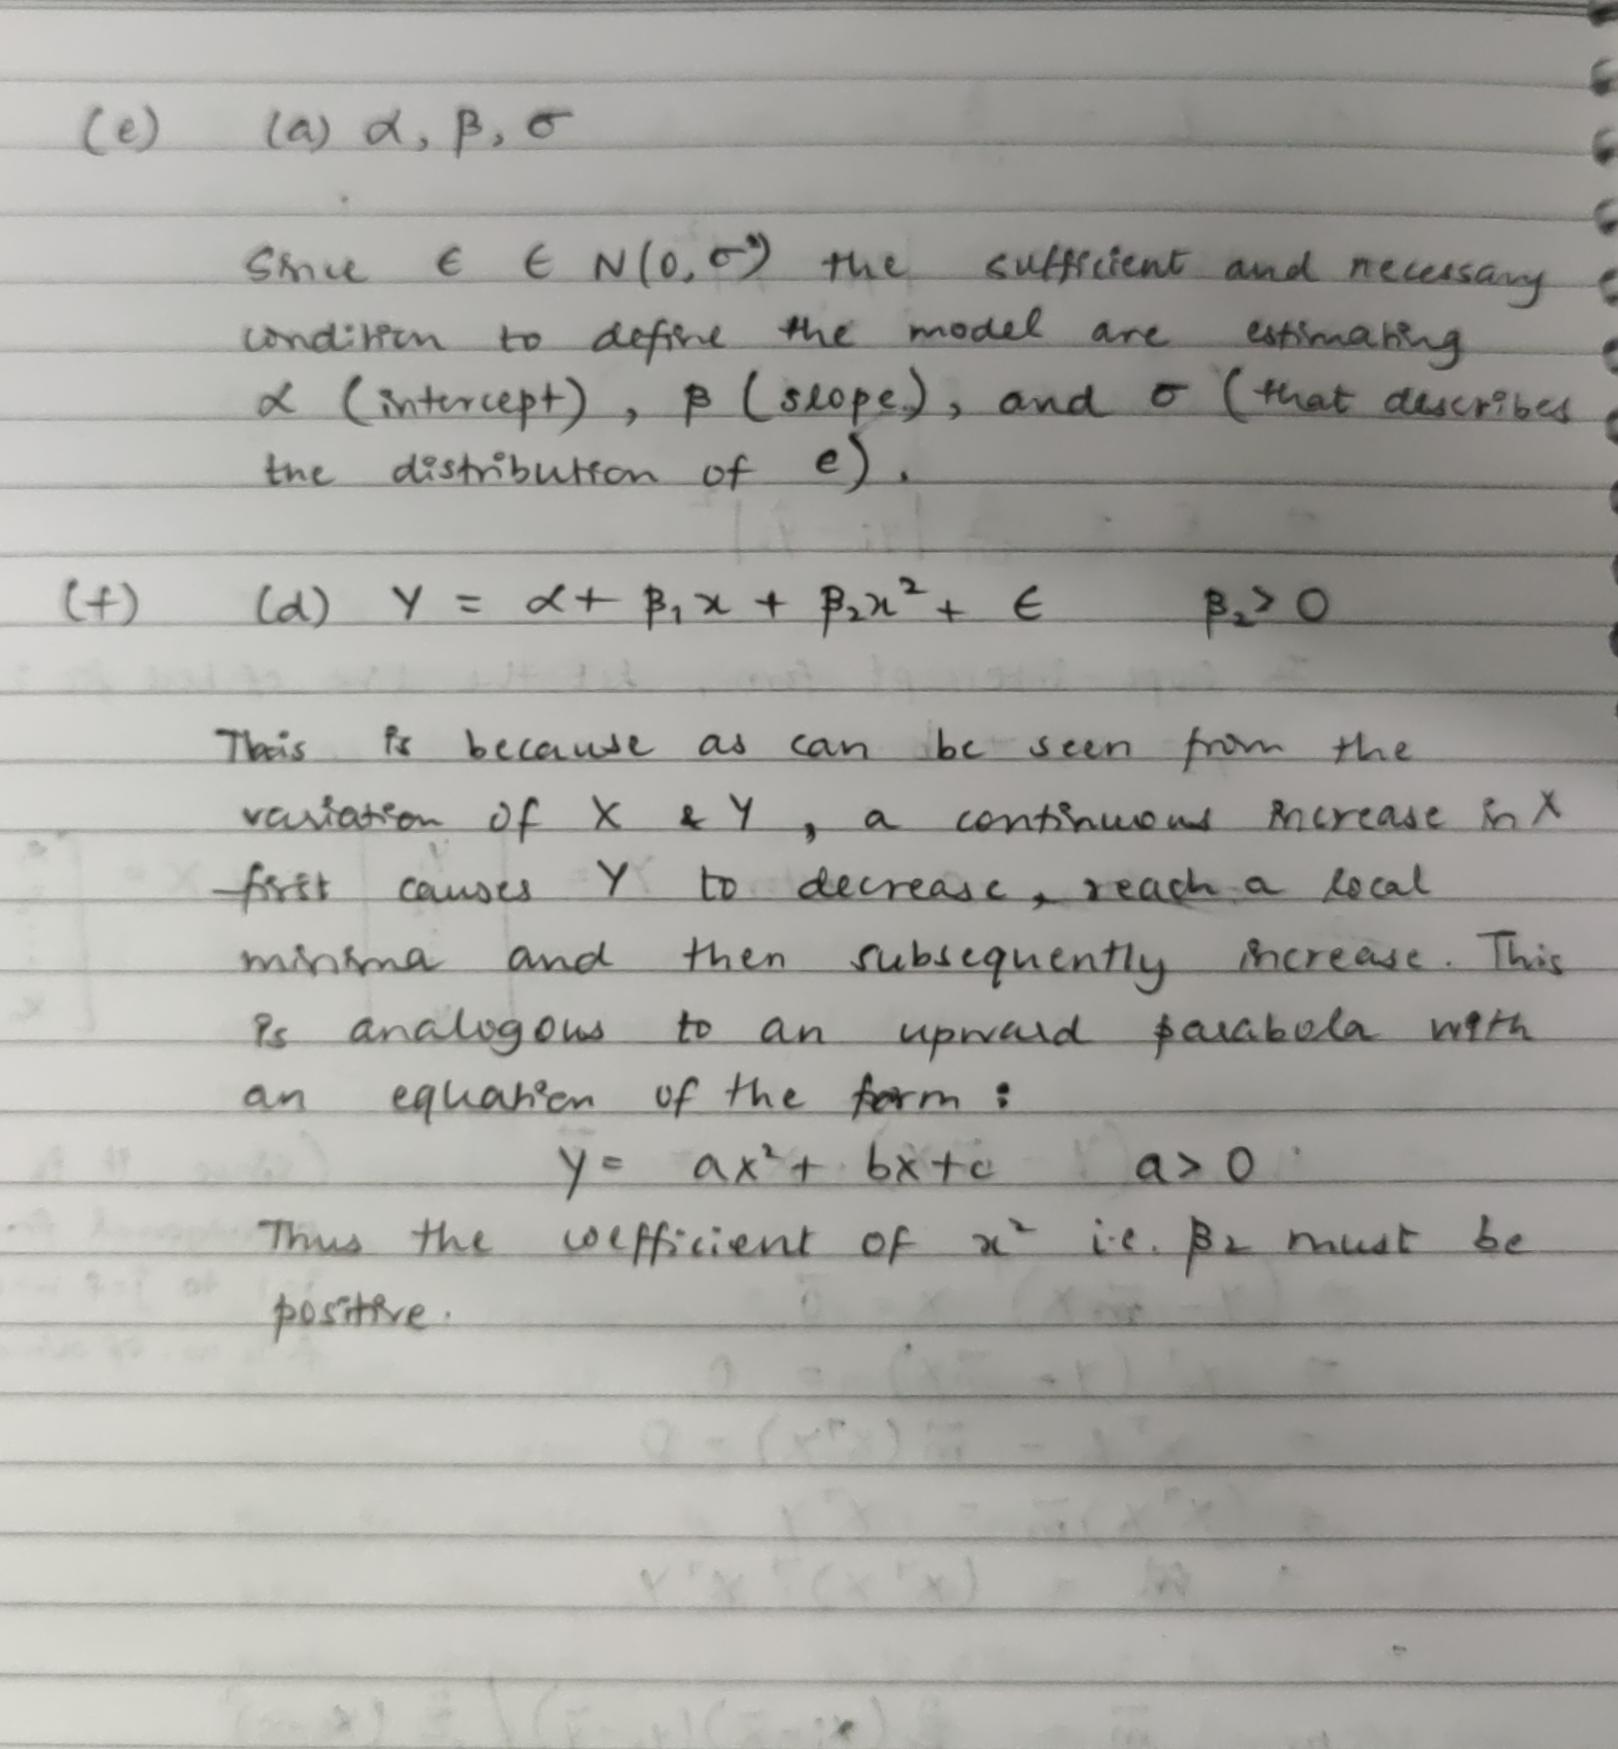 (e) (a) α, β, σ
Since ϵ ∈ N(0, σ²) the sufficient and necessary
condition to define the model are estimating
α (intercept), β (slope), and σ (that describes
the distribution of e).
(f) (d) Y = α + β₁x + β₂x² + ϵ β₂ > 0
This is because as can be seen from the
variation of X & Y, a continuous increase in X
first causes Y to decrease, reach a local
minima and then subsequently increase. This
is analogous to an upward parabola with
an equation of the form :
y = ax² + bx + c a > 0
Thus the coefficient of x² i.e. β₂ must be
positive.